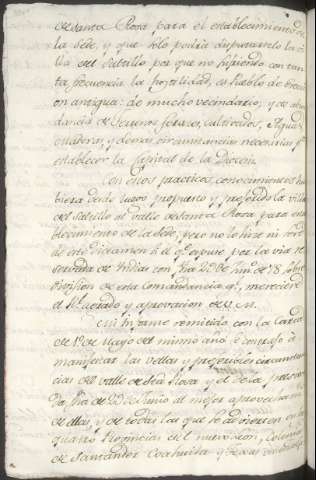 de Santa Rosa para el establecimiento de
la Sede, y que solo podia disputarselo la Vi
lla del Saltillo por que no sufriendo con tan
ta frecuencia la hostilidad, es Pueblo de
on antigua: de mucho vecindario, y de abun
dancia de terrenos feraces, cultivados, Aguas
maderas, y demas circunstancias necesarias p.ª
establecer la Capital de la Diocesi.
Con estos practicos conocimientos hu
biera desde luego propuesto y preferido la Villa
del Saltillo al Valle de Santa Rosa para esta
blecimiento de la Sede, pero no lo hize ni
de este dictamen h.ta q.e espuse por la via re
servada de Indias con fha 23 de Jun.o de 78 sobre
division de esta Comandancia g.l, mereciere
el R.l agrado y aprovacion de S. M.
Mi Informe remitido con la Carta
de 1.o de Mayo del mismo año se contrajo à
manifestar las vellas y preferibles circunstan
cias del Valle de Sta Rosa y el de la
da, fha de 23 de Junio al mejor aprovecham.to
de ellas, y de todas las que se advierten en las
quatro Provincias del nuevo Leon, Colonia
de Santander Coahuila y Texas